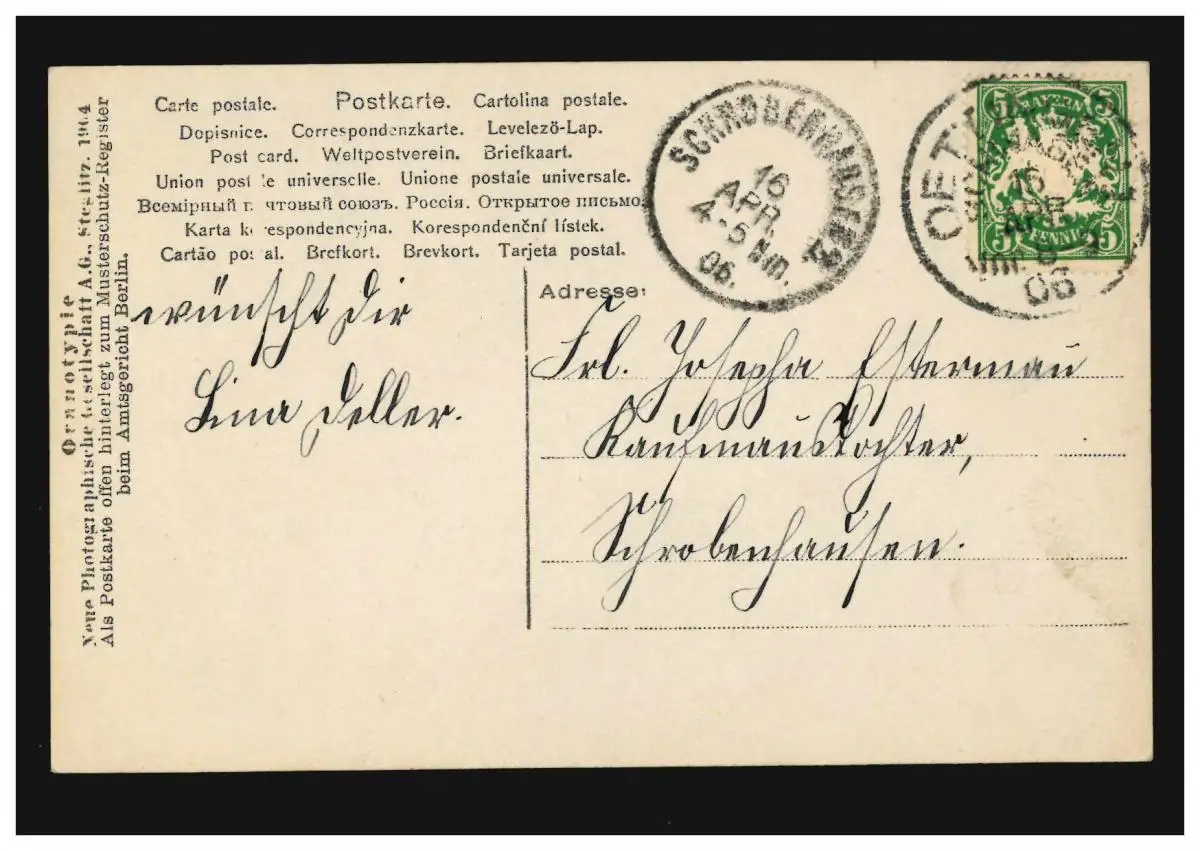 Orthotypie
Neue Photographische Gesellschaft A.G., Steglitz. 1904
Als Postkarte offen hinterlegt zum Musterschutz-Register
beim Amtsgericht Berlin.
Carte postale. Postkarte. Cartolina postale.
Dopisnice. Correspondenzkarte. Levelező-Lap.
Post card. Weltpostverein. Briefkaart.
Union postale universelle. Unione postale universale.
Всемірный почтовый союзъ. Россія. Открытое письмо.
Karta korespondencyjna. Korespondenční lístek.
Cartão postal. Brefkort. Brevkort. Tarjeta postal.
SCHROBENHAUSEN
16
APR
4-5 Nm.
06.
BAYERN
5 5
5 PFENNIG 5
16
APR
06
wünscht dir
Lina Deller.
Adresse:
Frl. Josepha Estermau
Kaufmanstochter,
Schrobenhausen.